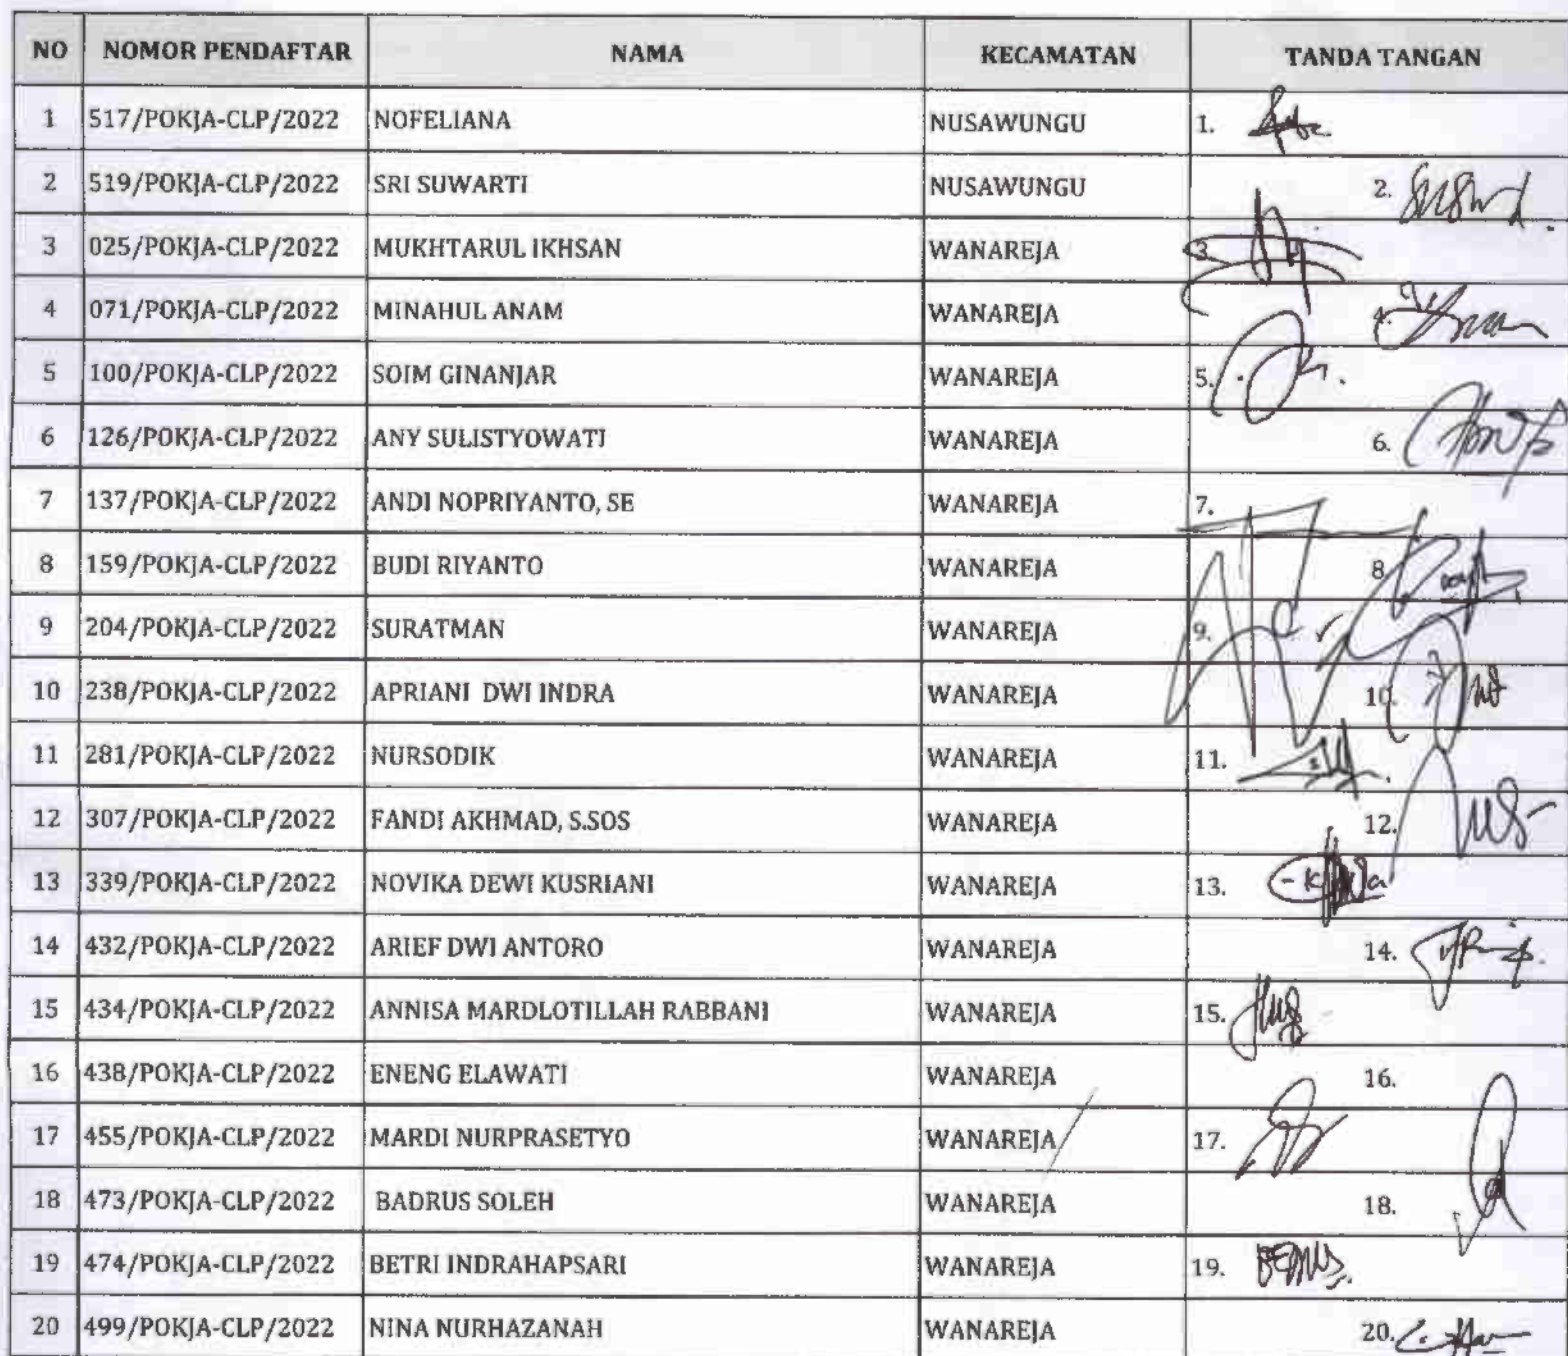 NO NOMOR PENDAFTAR NAMA KECAMATAN TANDA TANGAN
1 517/POKJA-CLP/2022 NOFELIANA NUSAWUNGU 1.
2 519/POKJA-CLP/2022 SRI SUWARTI NUSAWUNGU 2.
3 025/POKJA-CLP/2022 MUKHTARUL IKHSAN WANAREJA 3.
4 071/POKJA-CLP/2022 MINAHUL ANAM WANAREJA 4.
5 100/POKJA-CLP/2022 SOIM GINANJAR WANAREJA 5.
6 126/POKJA-CLP/2022 ANY SULISTYOWATI WANAREJA 6.
7 137/POKJA-CLP/2022 ANDI NOPRIYANTO, SE WANAREJA 7.
8 159/POKJA-CLP/2022 BUDI RIYANTO WANAREJA 8
9 204/POKJA-CLP/2022 SURATMAN WANAREJA 9.
10 238/POKJA-CLP/2022 APRIANI DWI INDRA WANAREJA 10.
11 281/POKJA-CLP/2022 NURSODIK WANAREJA 11.
12 307/POKJA-CLP/2022 FANDI AKHMAD, S.SOS WANAREJA 12.
13 339/POKJA-CLP/2022 NOVIKA DEWI KUSRIANI WANAREJA 13.
14 432/POKJA-CLP/2022 ARIEF DWI ANTORO WANAREJA 14.
15 434/POKJA-CLP/2022 ANNISA MARDLOTILLAH RABBANI WANAREJA 15.
16 438/POKJA-CLP/2022 ENENG ELAWATI WANAREJA 16.
17 455/POKJA-CLP/2022 MARDI NURPRASETYO WANAREJA 17.
18 473/POKJA-CLP/2022 BADRUS SOLEH WANAREJA 18.
19 474/POKJA-CLP/2022 BETRI INDRAHAPSARI WANAREJA 19.
20 499/POKJA-CLP/2022 NINA NURHAZANAH WANAREJA 20.